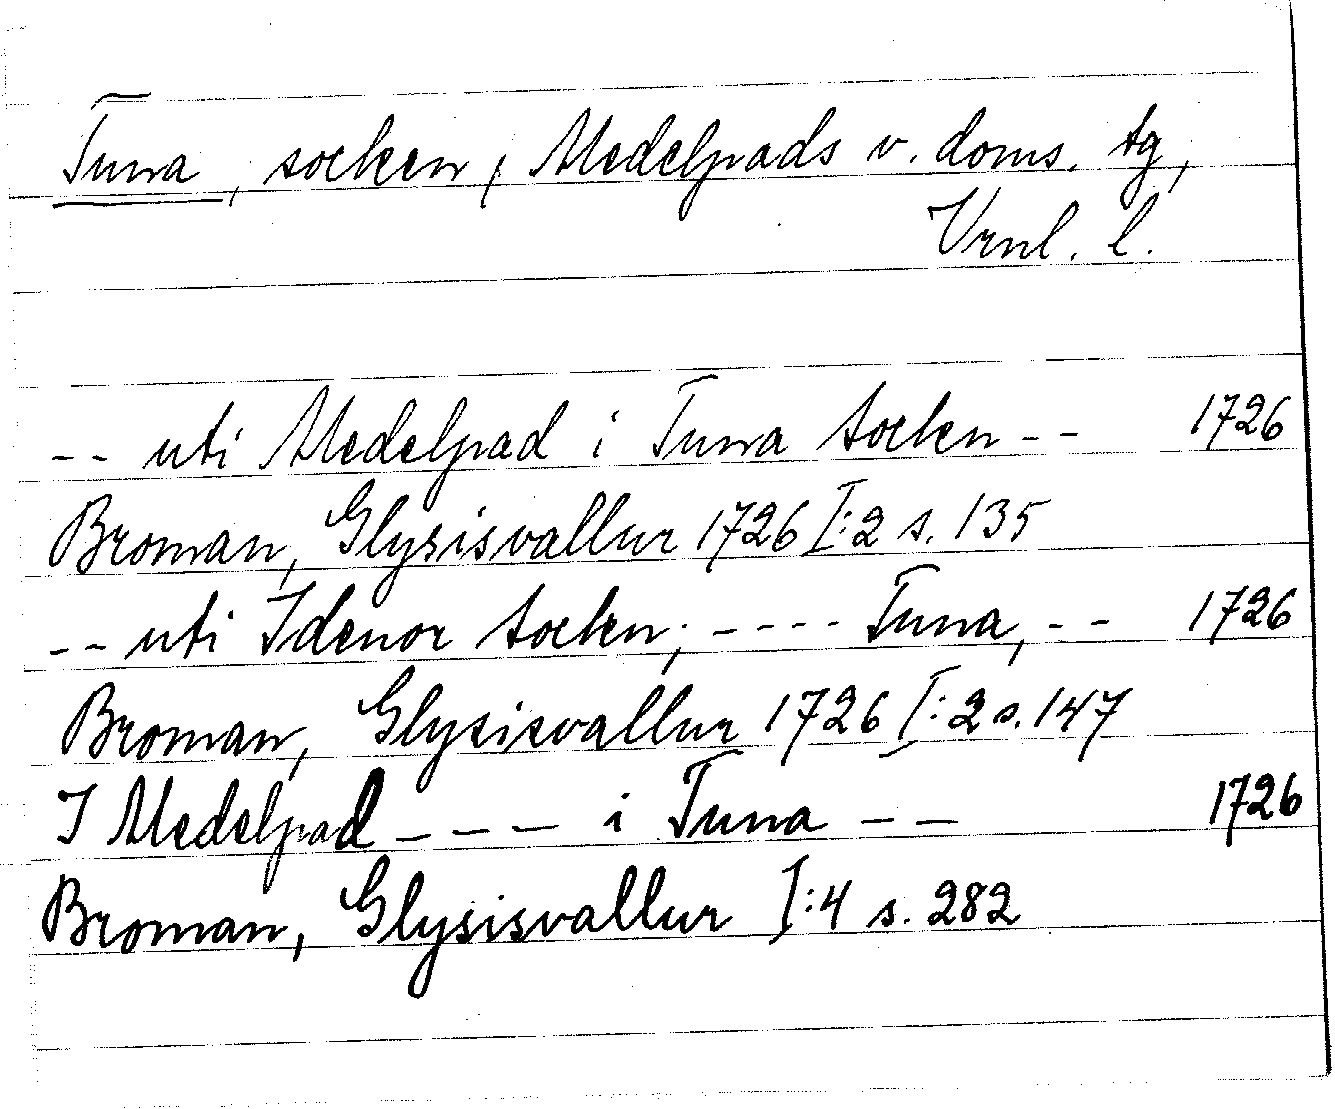 Tuna, socken, Medelpads v. doms. tg,
Vrnl. l.
-- uti Medelpad i Tuna Socken -- 1726
Broman, Glysisvallur 1726 I:2 s. 135
-- uti Idenor Socken; ---- Tuna, -- 1726
Broman, Glysisvallur 1726 I:2 s. 147
I Medelpad ---- i Tuna -- 1726
Broman, Glysisvallur I:4 s. 282